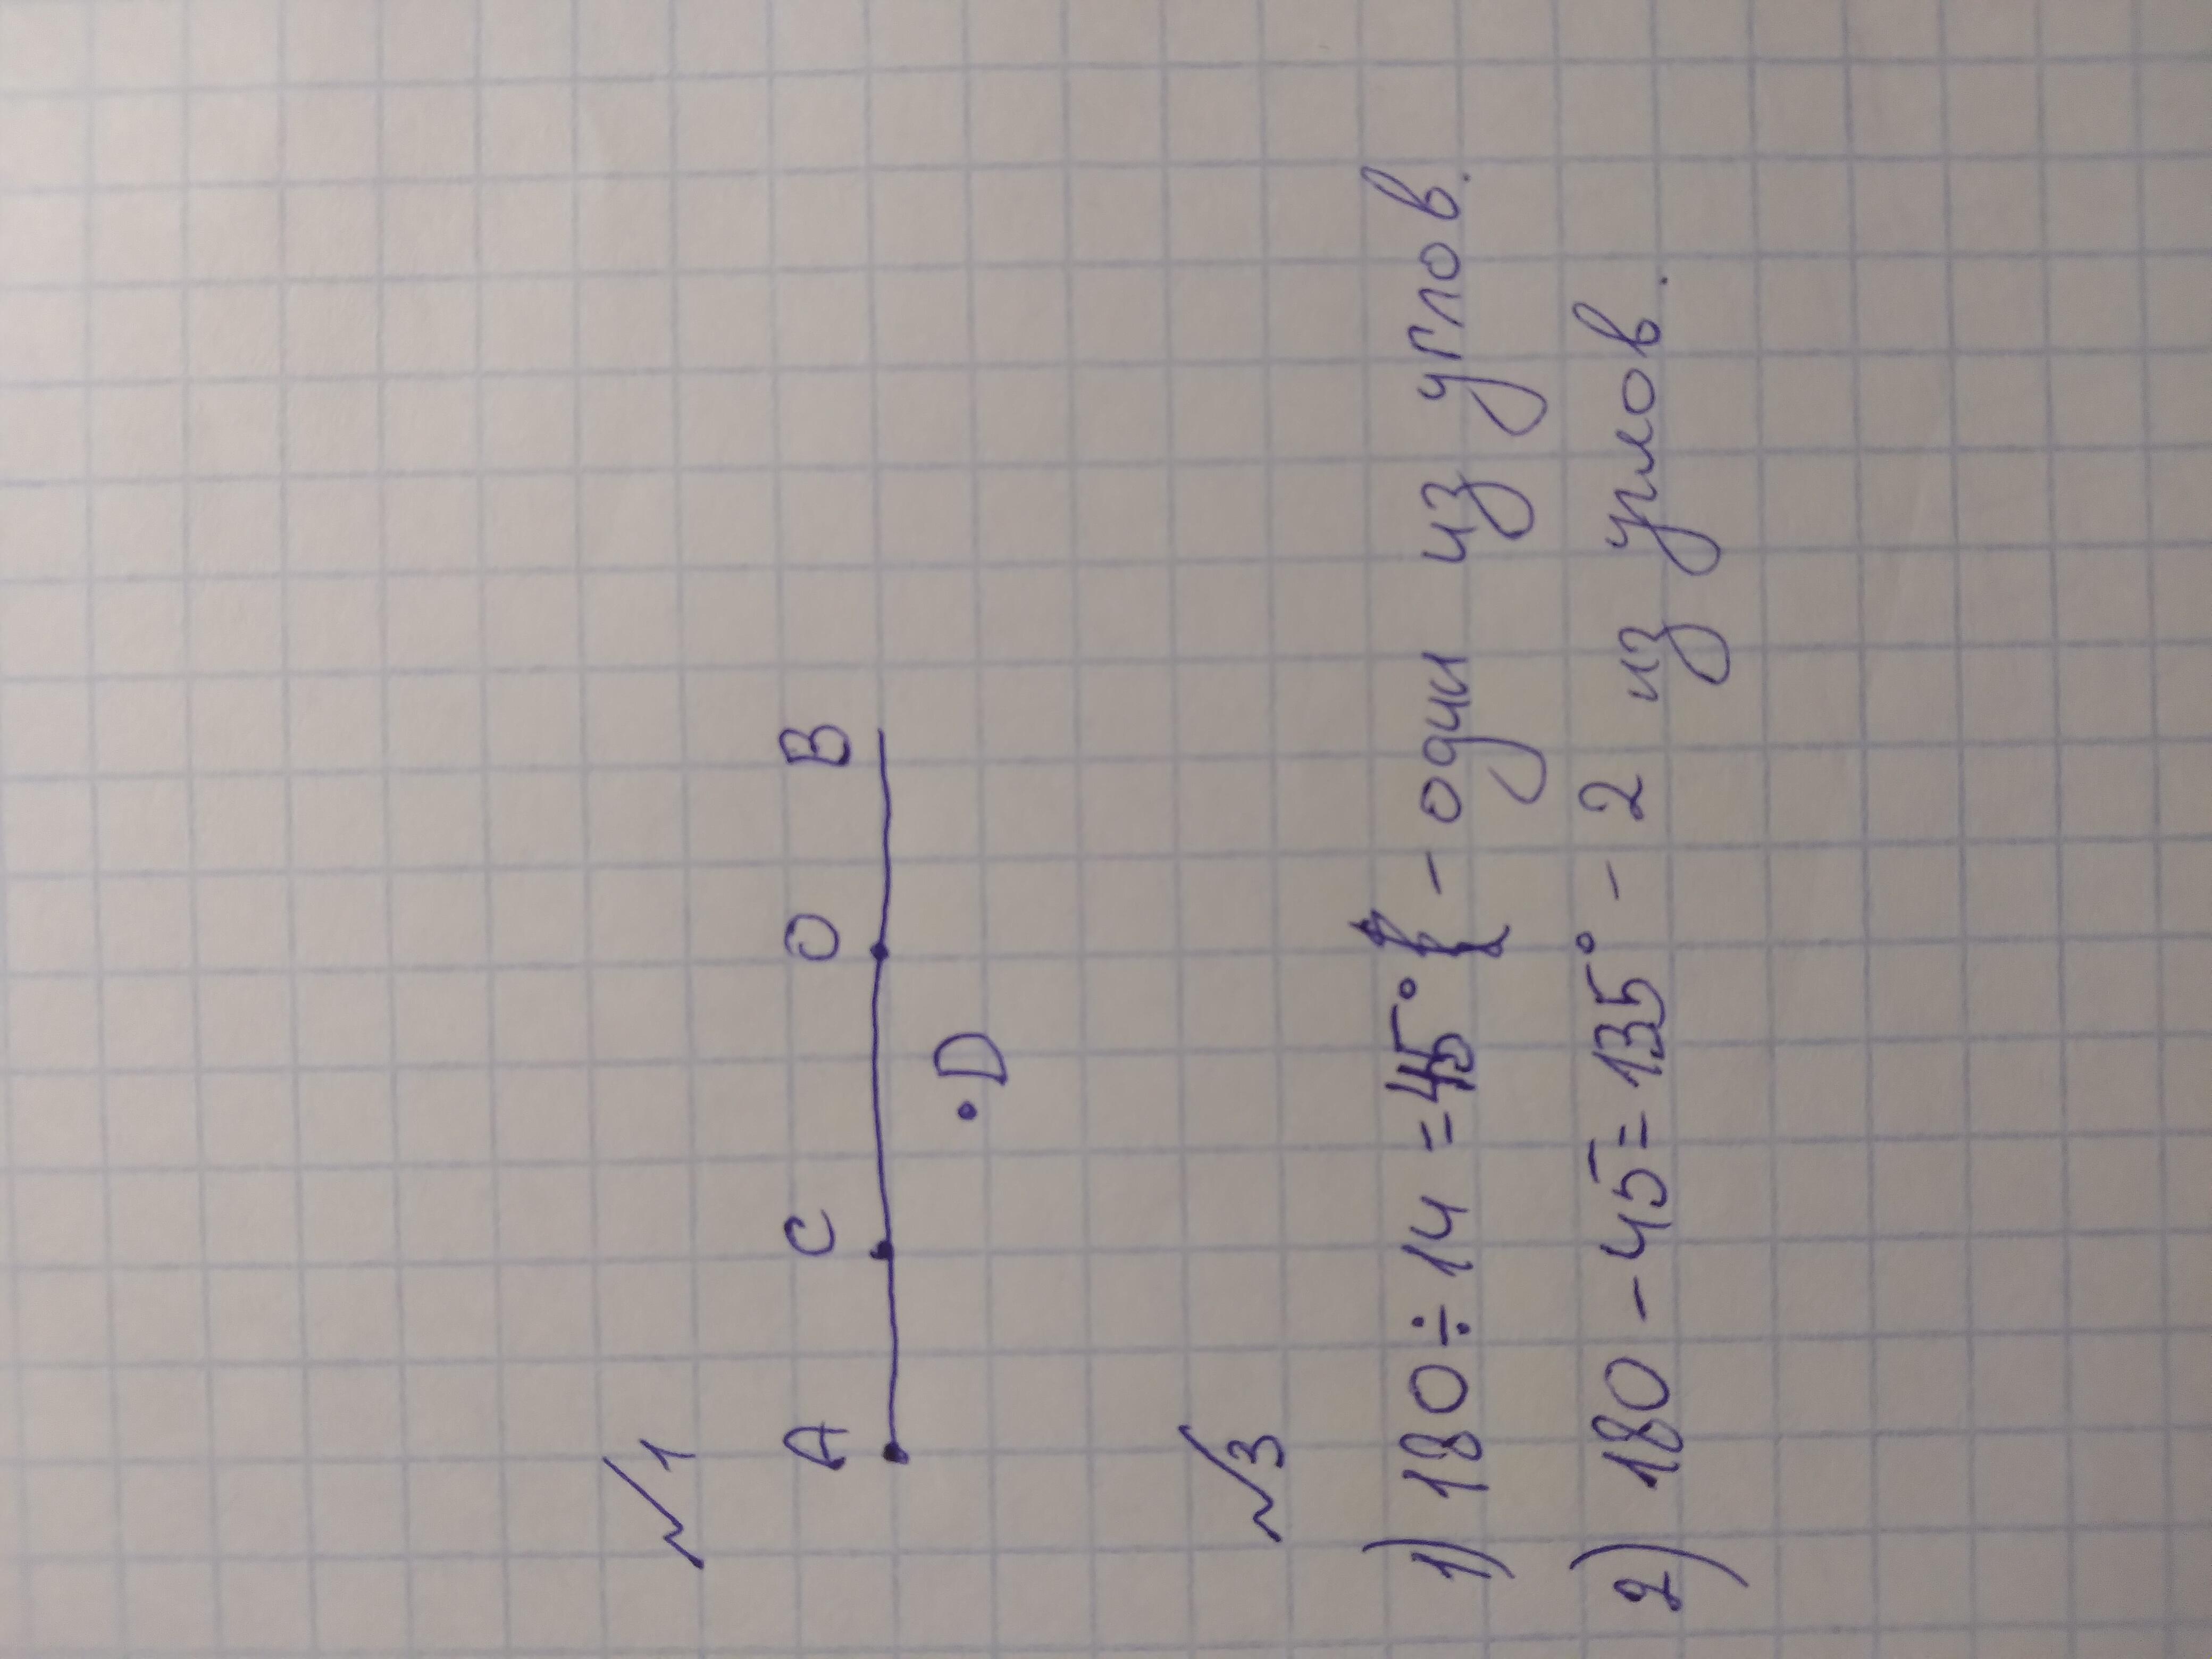 №1
A C O B
D
№3
1) 180÷14 =45° - один из углов.
2) 180 - 45=135° - 2 из углов.